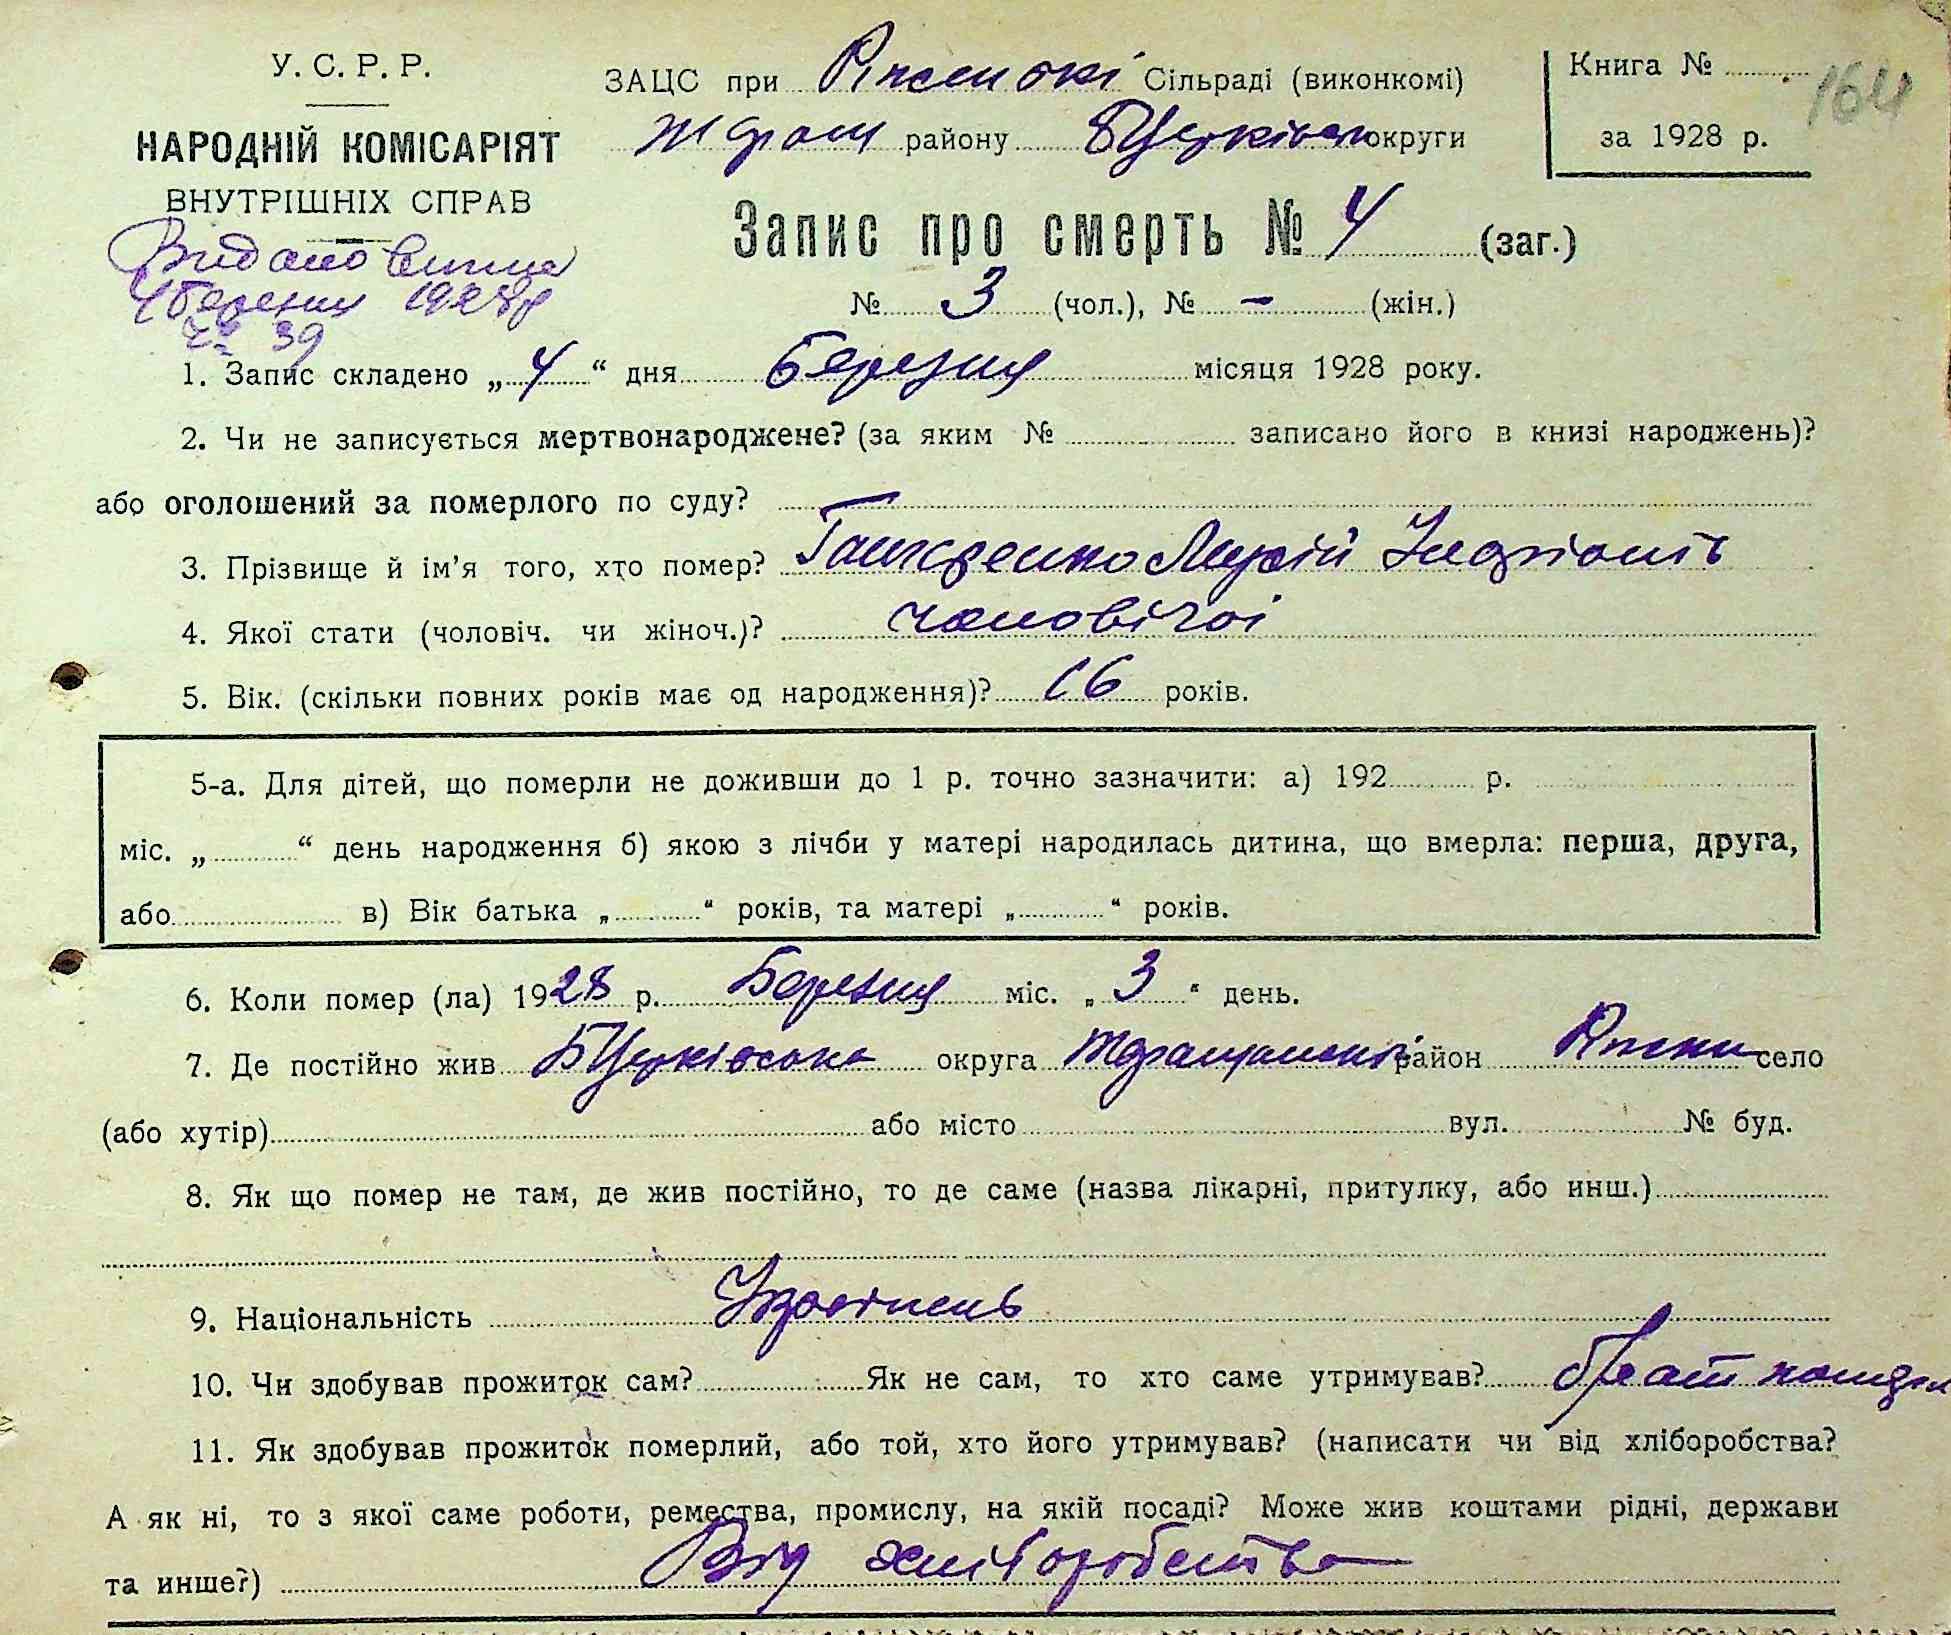 У.С.Р.Р.
НАРОДНІЙ КОМІСАРІЯТ
ВНУТРІШНІХ СПРАВ
Видано випис
4 березня 1928 р
№ 39
ЗАЦС при Ріжський Сільраді (виконкомі)
Ждрош району БЦерківськ округи
Книга № 164
за 1928 р.
Запис про смерть № 4 (заг.)
№ 3 (чол.), № – (жін.)
1. Запис складено „ 4 “ дня Березня місяця 1928 року.
2. Чи не записується мертвонароджене? (за яким № записано його в книзі народжень)?
або оголошений за померлого по суду? —
3. Прізвище й ім'я того, хто помер?
4. Якої стати (чоловіч. чи жіноч.)? чоловічої
5. Вік. (скільки повних років має од народження)? 16 років.
5-а. Для дітей, що померли не доживши до 1 р. точно зазначити: а) 192 р.
міс. „ “ день народження б) якою з лічби у матері народилась дитина, що вмерла: перша, друга,
або в) Вік батька „ “ років, та матері „ “ років.
6. Коли помер (ла) 1928 р. Березня міс. „ 3 “ день.
7. Де постійно жив БЦерківська округа район село
(або хутір) або місто вул. № буд.
8. Як що помер не там, де жив постійно, то де саме (назва лікарні, притулку, або инш.)
9. Національність Українець
10. Чи здобував прожиток сам? Як не сам, то хто саме утримував? брат
11. Як здобував прожиток померлий, або той, хто його утримував? (написати чи від хліборобства?
А як ні, то з якої саме роботи, ремества, промислу, на якій посаді? Може жив коштами рідні, держави
та инше?) Від хліборобства